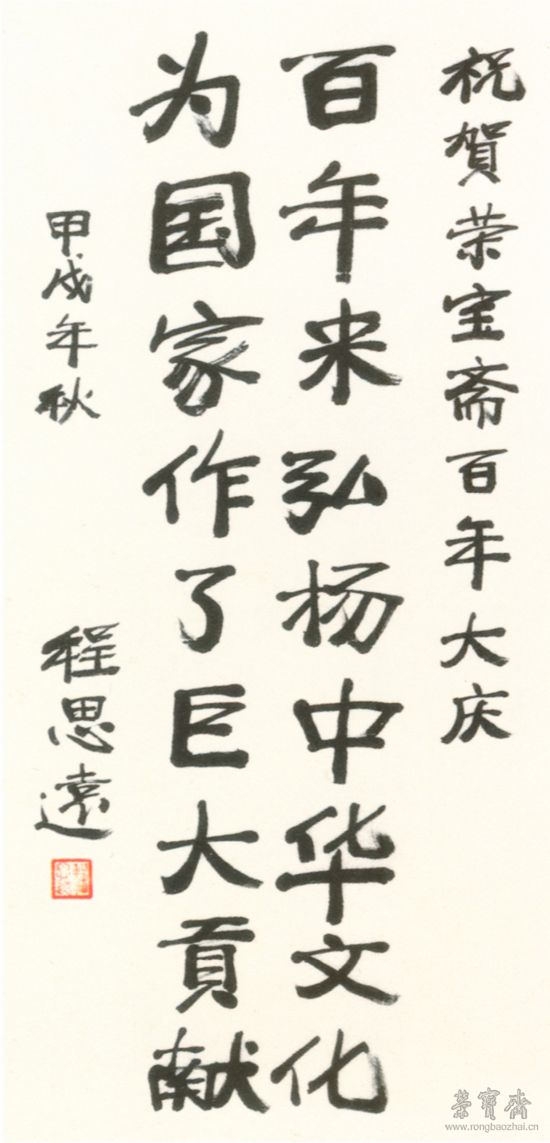 祝賀荣宝斋百年大庆
百年来弘杨中华文化
为国家作了巨大貢献
甲戌年秋
程思遠
榮寶齋
www.rongbaozhai.cn